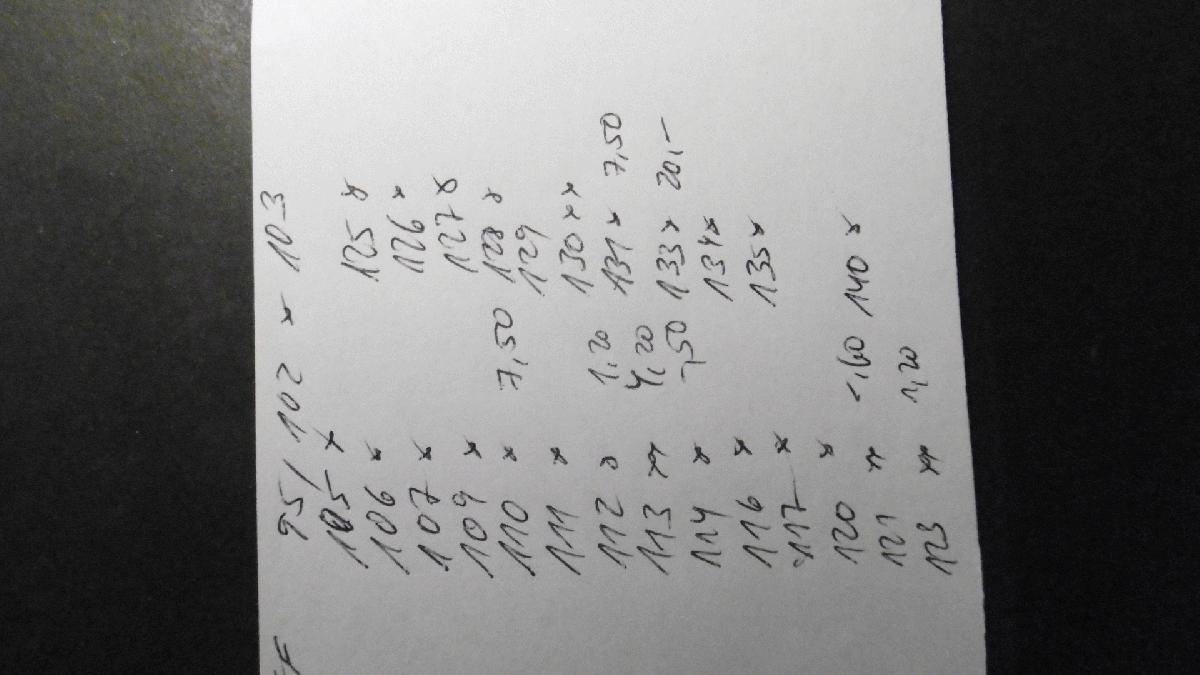 95/ 102 x 103
105 x 125 x
106 x 126 x
107 x 127 x
109 x 7,50 128 x
110 x 129
111 x 130 x x
112 x 1,20 131 x 7,50
113 xx 4,20 133 x 20,-
114 x -,50 134 x
116 x 135 x
117 x
120 x -,60 140 x
121 xx 1,20
123 xx